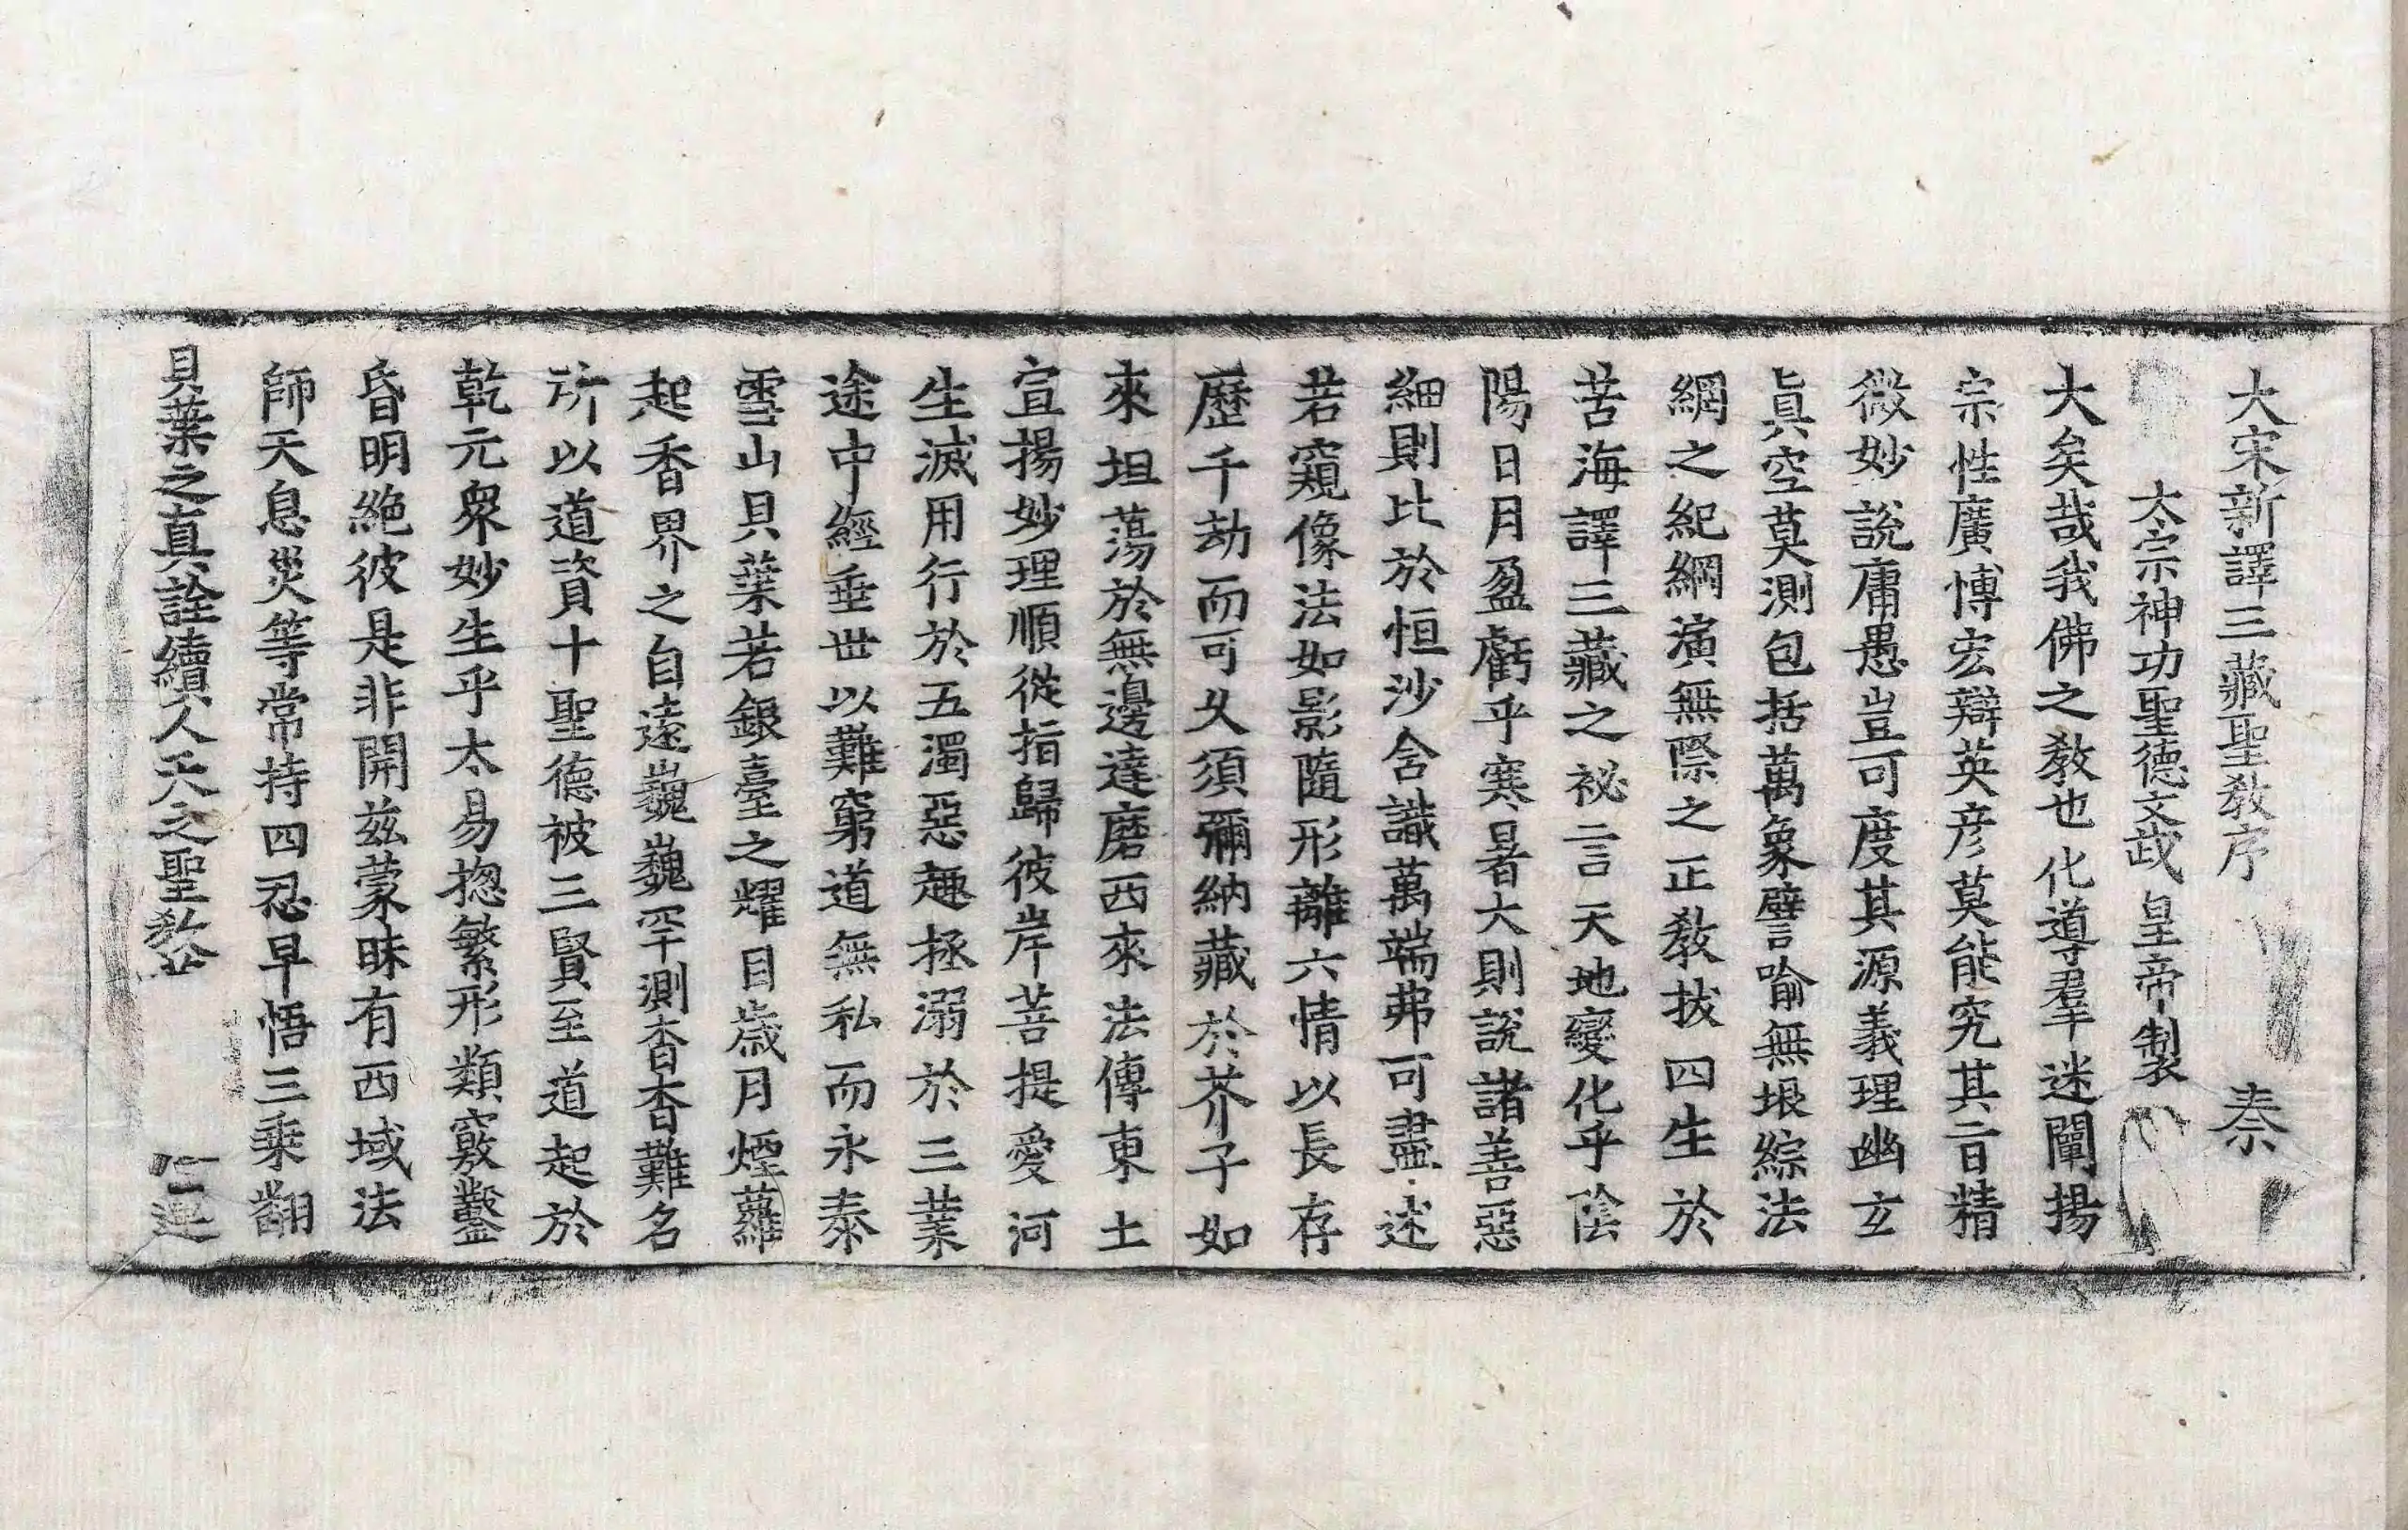 大宋新譯三藏聖教序 㮈
太宗神功聖德文武 皇帝製
大矣哉我佛之教也化導羣迷闡揚
宗性廣愽宏辯英彦莫能究其㫖精
微妙說庸愚豈可度其源義理幽玄
眞空莫測包括萬象譬喻無垠綜法
網之紀綱演無際之正教拔四生於
苦海譯三藏之祕言天地變化乎陰
陽日月盈虧乎寒暑大則說諸善惡
細則比於恒沙含識萬端弗可盡述
若窺像法如影隨形離六情以長存
歷千劫而可久須彌納藏於芥子如
來坦蕩於無邊達磨西來法傳東土
宣揚妙理順從指歸彼岸菩提愛河
生滅用行於五濁惡趣拯溺於三業
途中經垂世以難窮道無私而永泰
雪山貝葉若銀臺之耀目歲月煙蘿
起香界之自遠巍巍罕測杳杳難名
所以道資十聖德被三賢至道起於
乾元衆妙生乎太易揔繁形類竅鑿
昏明絕彼是非開兹蒙昧有西域法
師天息災等常持四忍早悟三乘翻
貝葉之真詮續人天之聖教